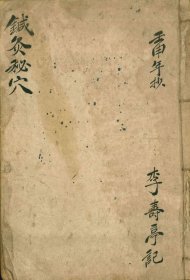 年抄
李壽亭記
鍼灸秘穴